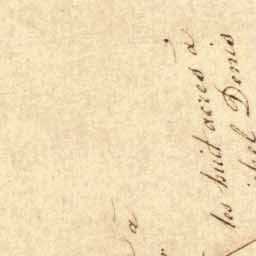 à
les huit acres à
Denis